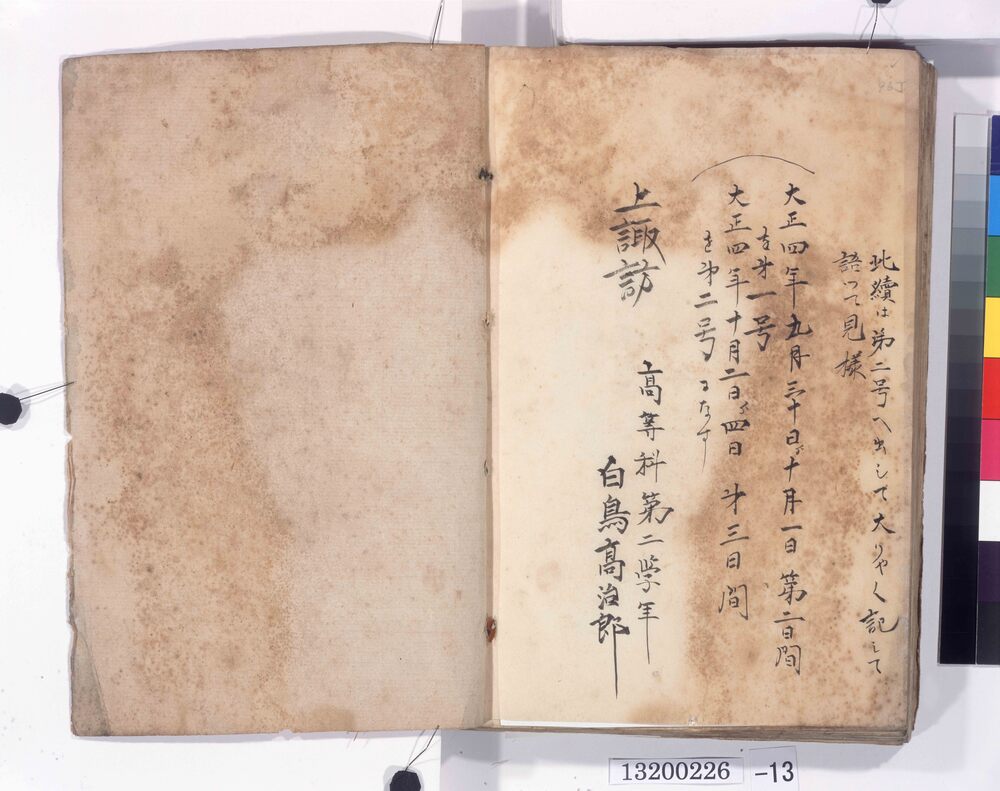 此續は第二号へ出して大りやく記して
語って見様
大正四年九月三十日ゟ十月一日第二日間
を㐧一号
大正四年十月二日ゟ四日㐧三日間
を㐧二号になす
上諏訪
高等科第二学年
白鳥高治郎
13200226 -13